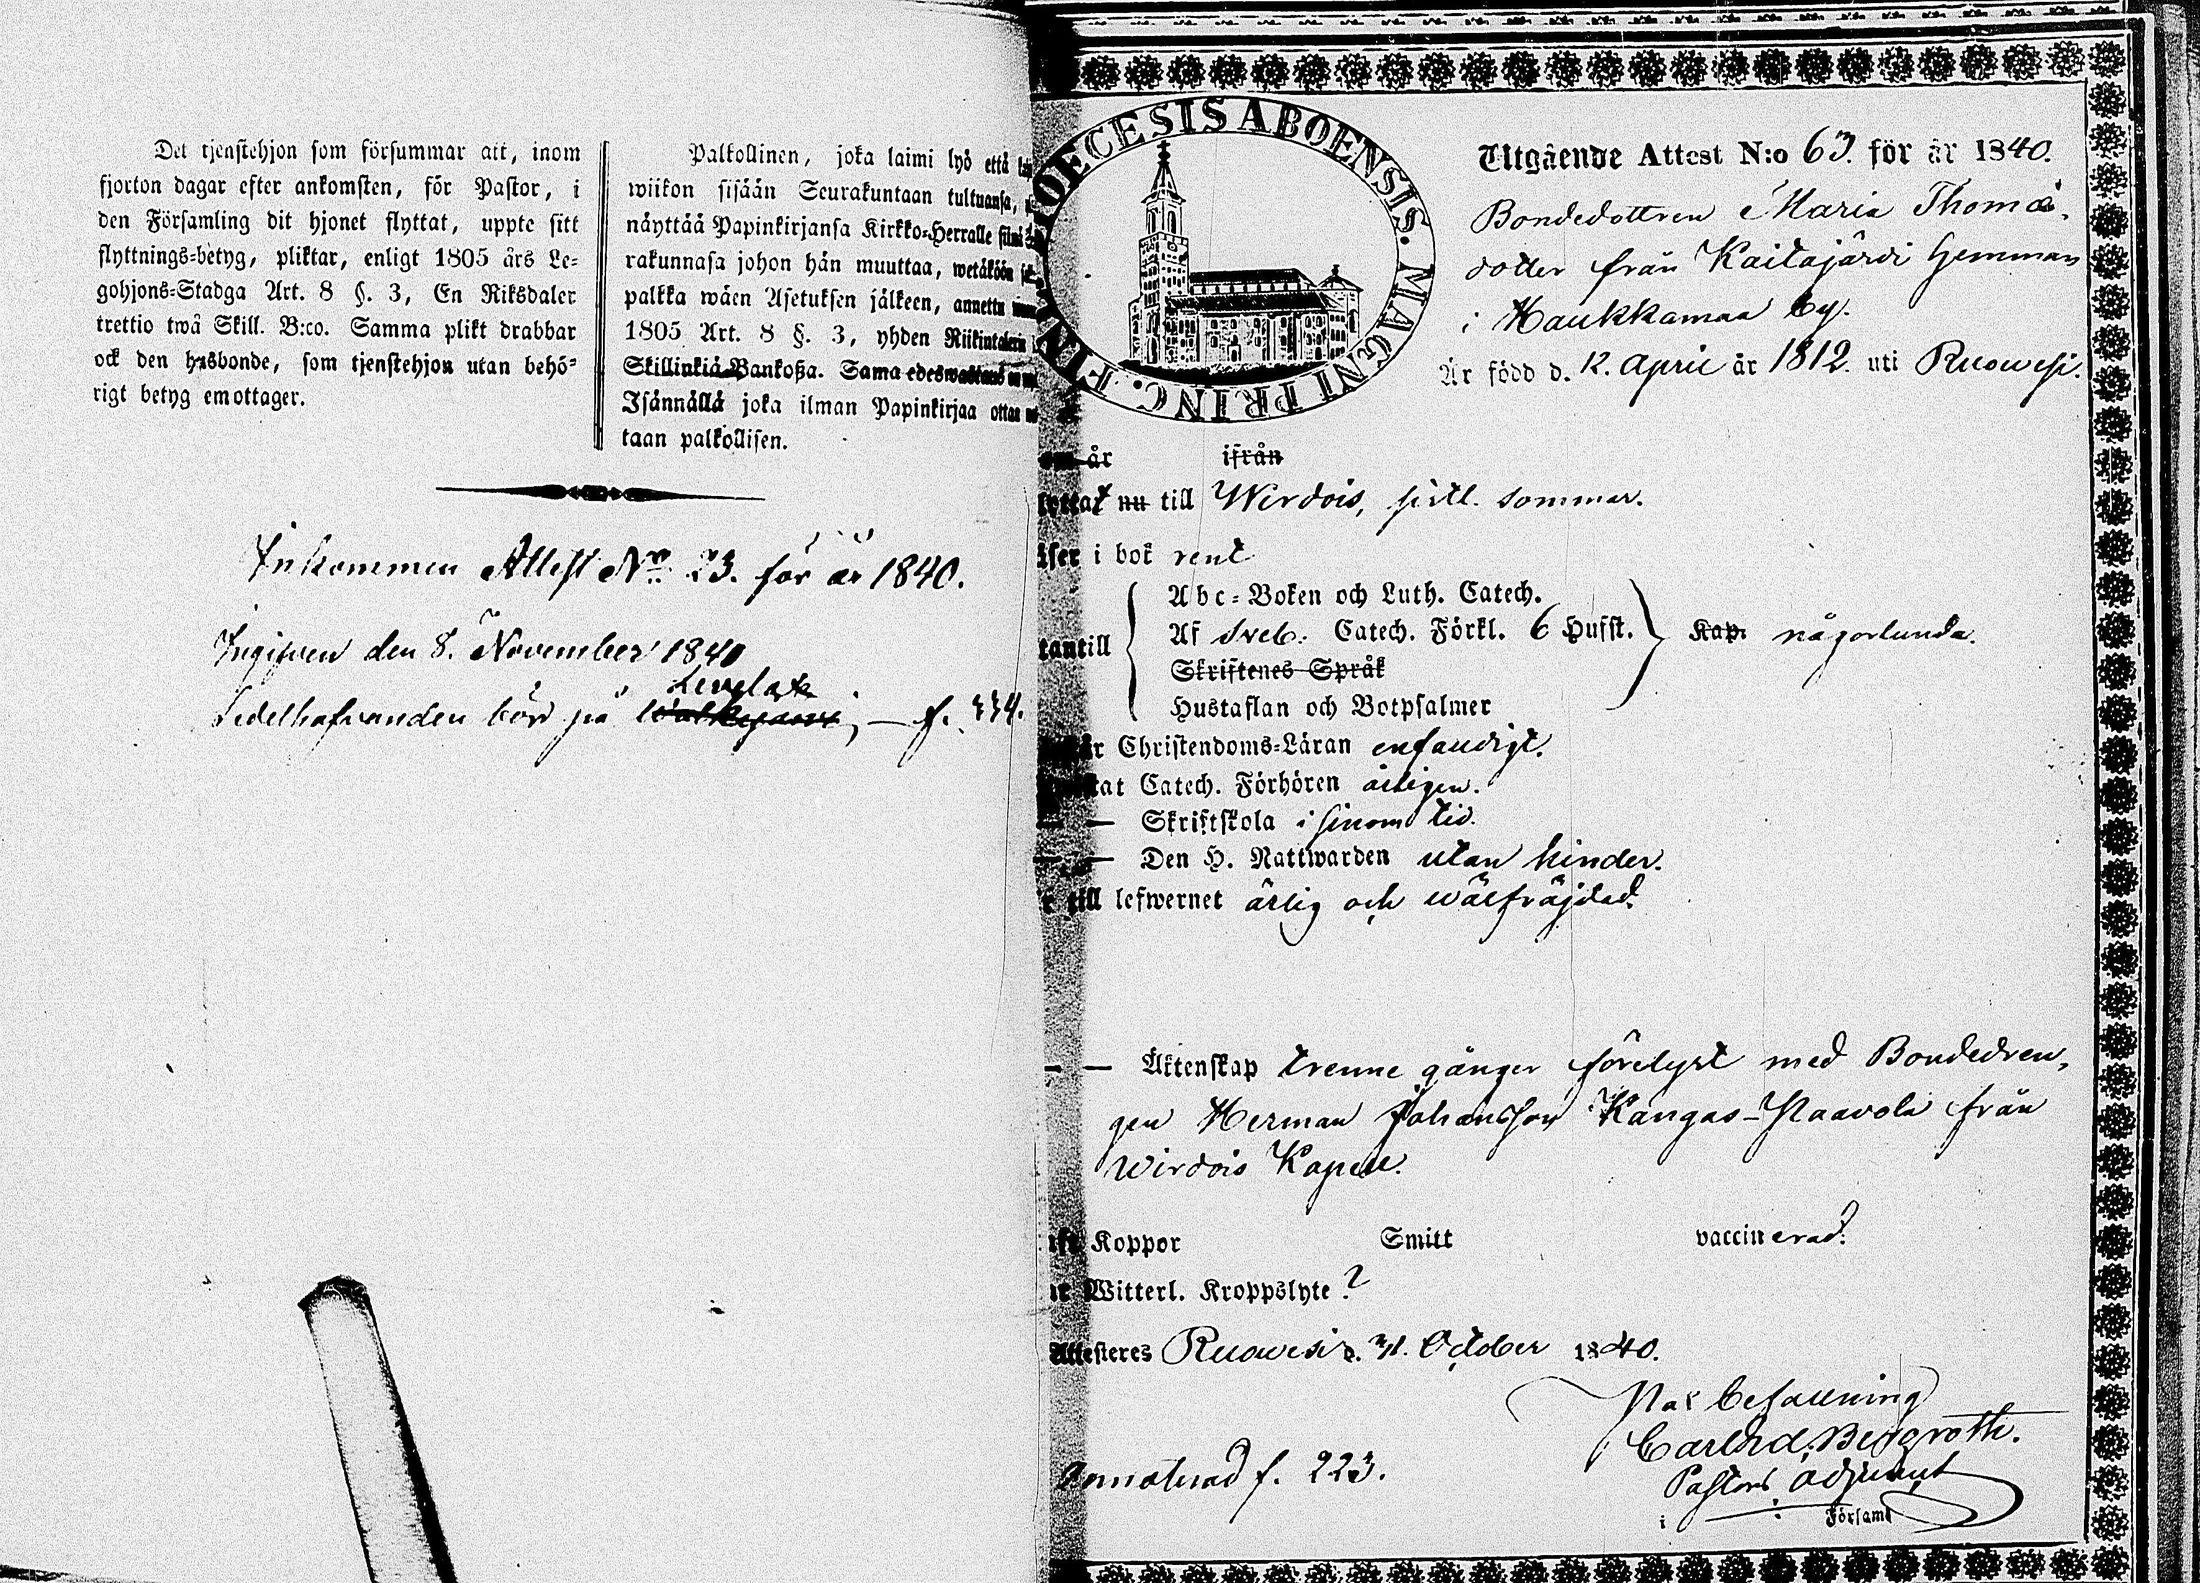 Det tjenstehjon som försummar att, inom
fjorton dagar efter ankomsten, för Pastor, i
den Församling dit hjonet flyttat, uppte sitt
flyttnings=betyg, pliktar, enligt 1805 års Le=
gohjons=Stadga Art. 8 §. 3, En Riksdaler
trettio twå Skill. B:co. Samma plikt drabbar
ock den husbonde, som tjenstehjon utan behö=
rigt betyg emottager.
Palkollinen, joka laimi lyö että
wiikon sisään Seurakuntaan tultuansa,
näyttää Papinkirjansa Kirkko=Herralle siinä
rakunnasa johon hän muuttaa, wetäköön
palkka wäen Asetuksen jälkeen, annettu
1805 Art. 8 §. 3, yhden Riikintalerin
Skillinkiä Bankoßa. Sama edeswastaus
Isännällä joka ilman Papinkirjaa ottaa
taan palkollisen.
Inkommen Attest No 23. för år 1840.
Ingifven den 8. November 1840
Levelax
Sedelhafvanden bör på ; — f. 334.
DIOECESIS ABOENSIS. MAGNI PRINC. FINL.
Utgående Attest N:o 63. för år 1840.
Bondedottren Maria Thomæ,
dotter från Kaitajärvi Hemman
i Haukkamaa by.
Är född d. 12. April år 1812. uti Ruowesi.
om år ifrån
lyttat nu till Wirdois, sistl. sommar.
äser i bok rent
Abc=Boken och Luth. Catech.
tantill Af Sveb: Catech. Förkl. 6 Hufst. Kap. någorlunda.
Skriftenes Språk
Hustaflan och Botpsalmer
Christendoms=Läran enfaldigt.
Catech. Förhören årligen.
— Skriftskola i sinom tid.
— Den H. Nattwarden utan hinder.
till lefwernet ärlig och wälfräjdad.
— — Äktenskap trenne gånger förelyst med Bondedren,
gen Herman Johansson Kangas-Paavola från
Wirdois Kapell.
Koppor Smitt vaccinerad.
Witterl. Kroppslyte ?
Attesteres Ruowesi d. 31. October 1840.
På befallning
Carl Bergroth.
Pastors adjunct
i — Församl
Annoterad f. 223.